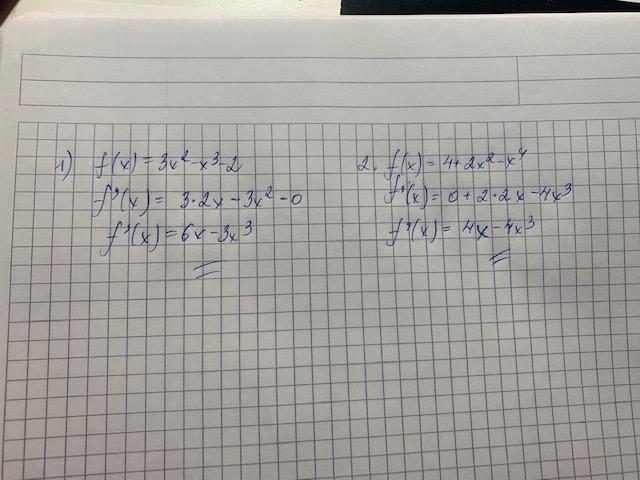 1) f(x) = 3x² - x³ - 2
f'(x) = 3·2x - 3x² - 0
f'(x) = 6x - 3x³
2. f(x) = 4 + 2x² - x⁴
f'(x) = 0 + 2·2x - 4x³
f'(x) = 4x - 4x³